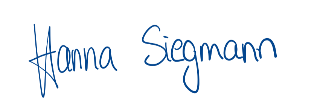 Hanna Siegmann